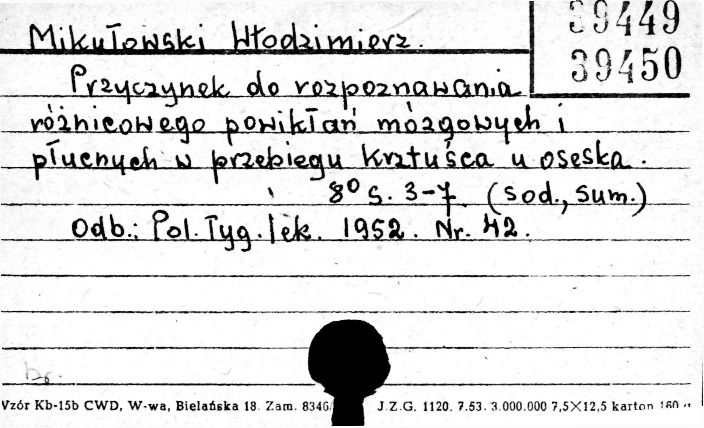 39449
39450
Mikułowski Włodzimierz.
Przyczynek do rozpoznawania
różnicowego powikłań mózgowych i
płucnych w przebiegu krztuśca u oseska.
8° s. 3-7. (sod., sum.)
Odb.: Pol. Tyg. lek. 1952. Nr. 42.
Vzór Kb-15b CWD, W-wa, Bielańska 18. Zam. 8346/ J.Z.G. 1120. 7.53. 3.000.000 7,5×12,5 karton 160